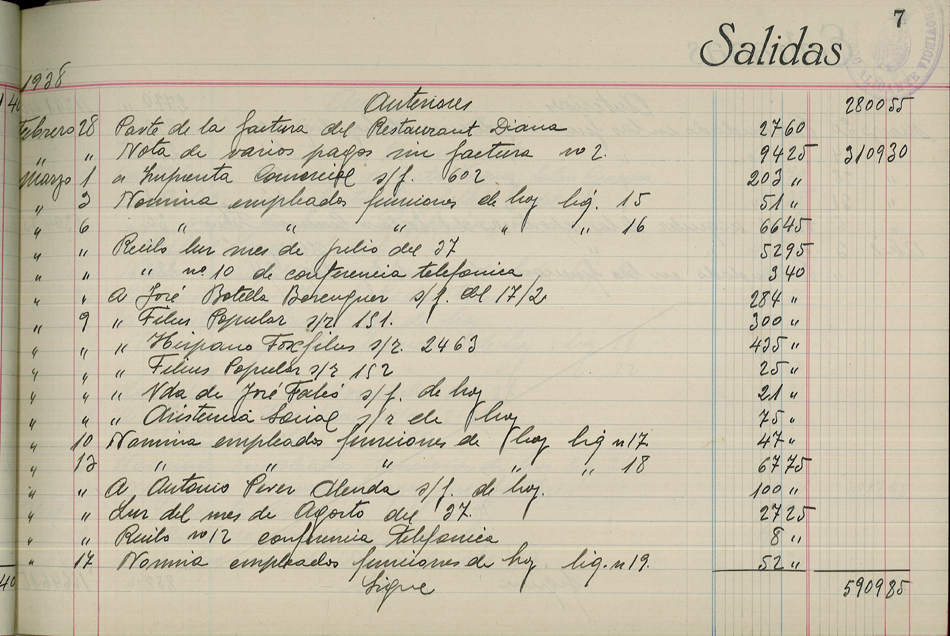 7
Salidas
1938
Anteriores 280055
Febrero 28 Parte de la factura del Restaurant Diana 2760
" " Nota de varios pagos sin factura nº 2. 9425 310930
Marzo 1 a Imprenta Comercial s/f. 602 203 "
" 3 Nomina empleados funciones de hoy liq. 15 51 "
" 6 " " " " " 16 6645
" " Recibo luz mes de julio del 37 5295
" " " nº 10 de conferencia telefonica 340
" " A José Botella Berenguer s/f. del 17/2 284 "
" 9 " Films Popular s/r 151. 300 "
" " " Hispano Foxfilms s/r. 2463 435 "
" " " Films Popular s/r 152 25 "
" " " Vda de José s/f. de hoy 21 "
" " " Asistencia Social s/r de hoy 75 "
" 10 Nomina empleados funciones de hoy liq nº 17 47 "
" 13 " " " " " 18 6775
" " A Antonio Perez s/f. de hoy. 100 "
" " Luz del mes de Agosto del 37. 2725
" " Recibo nº 12 conferencia telefonica 8 "
" 17 Nomina empleados funciones de hoy liq. nº 19. 52 "
40 Sigue 590985